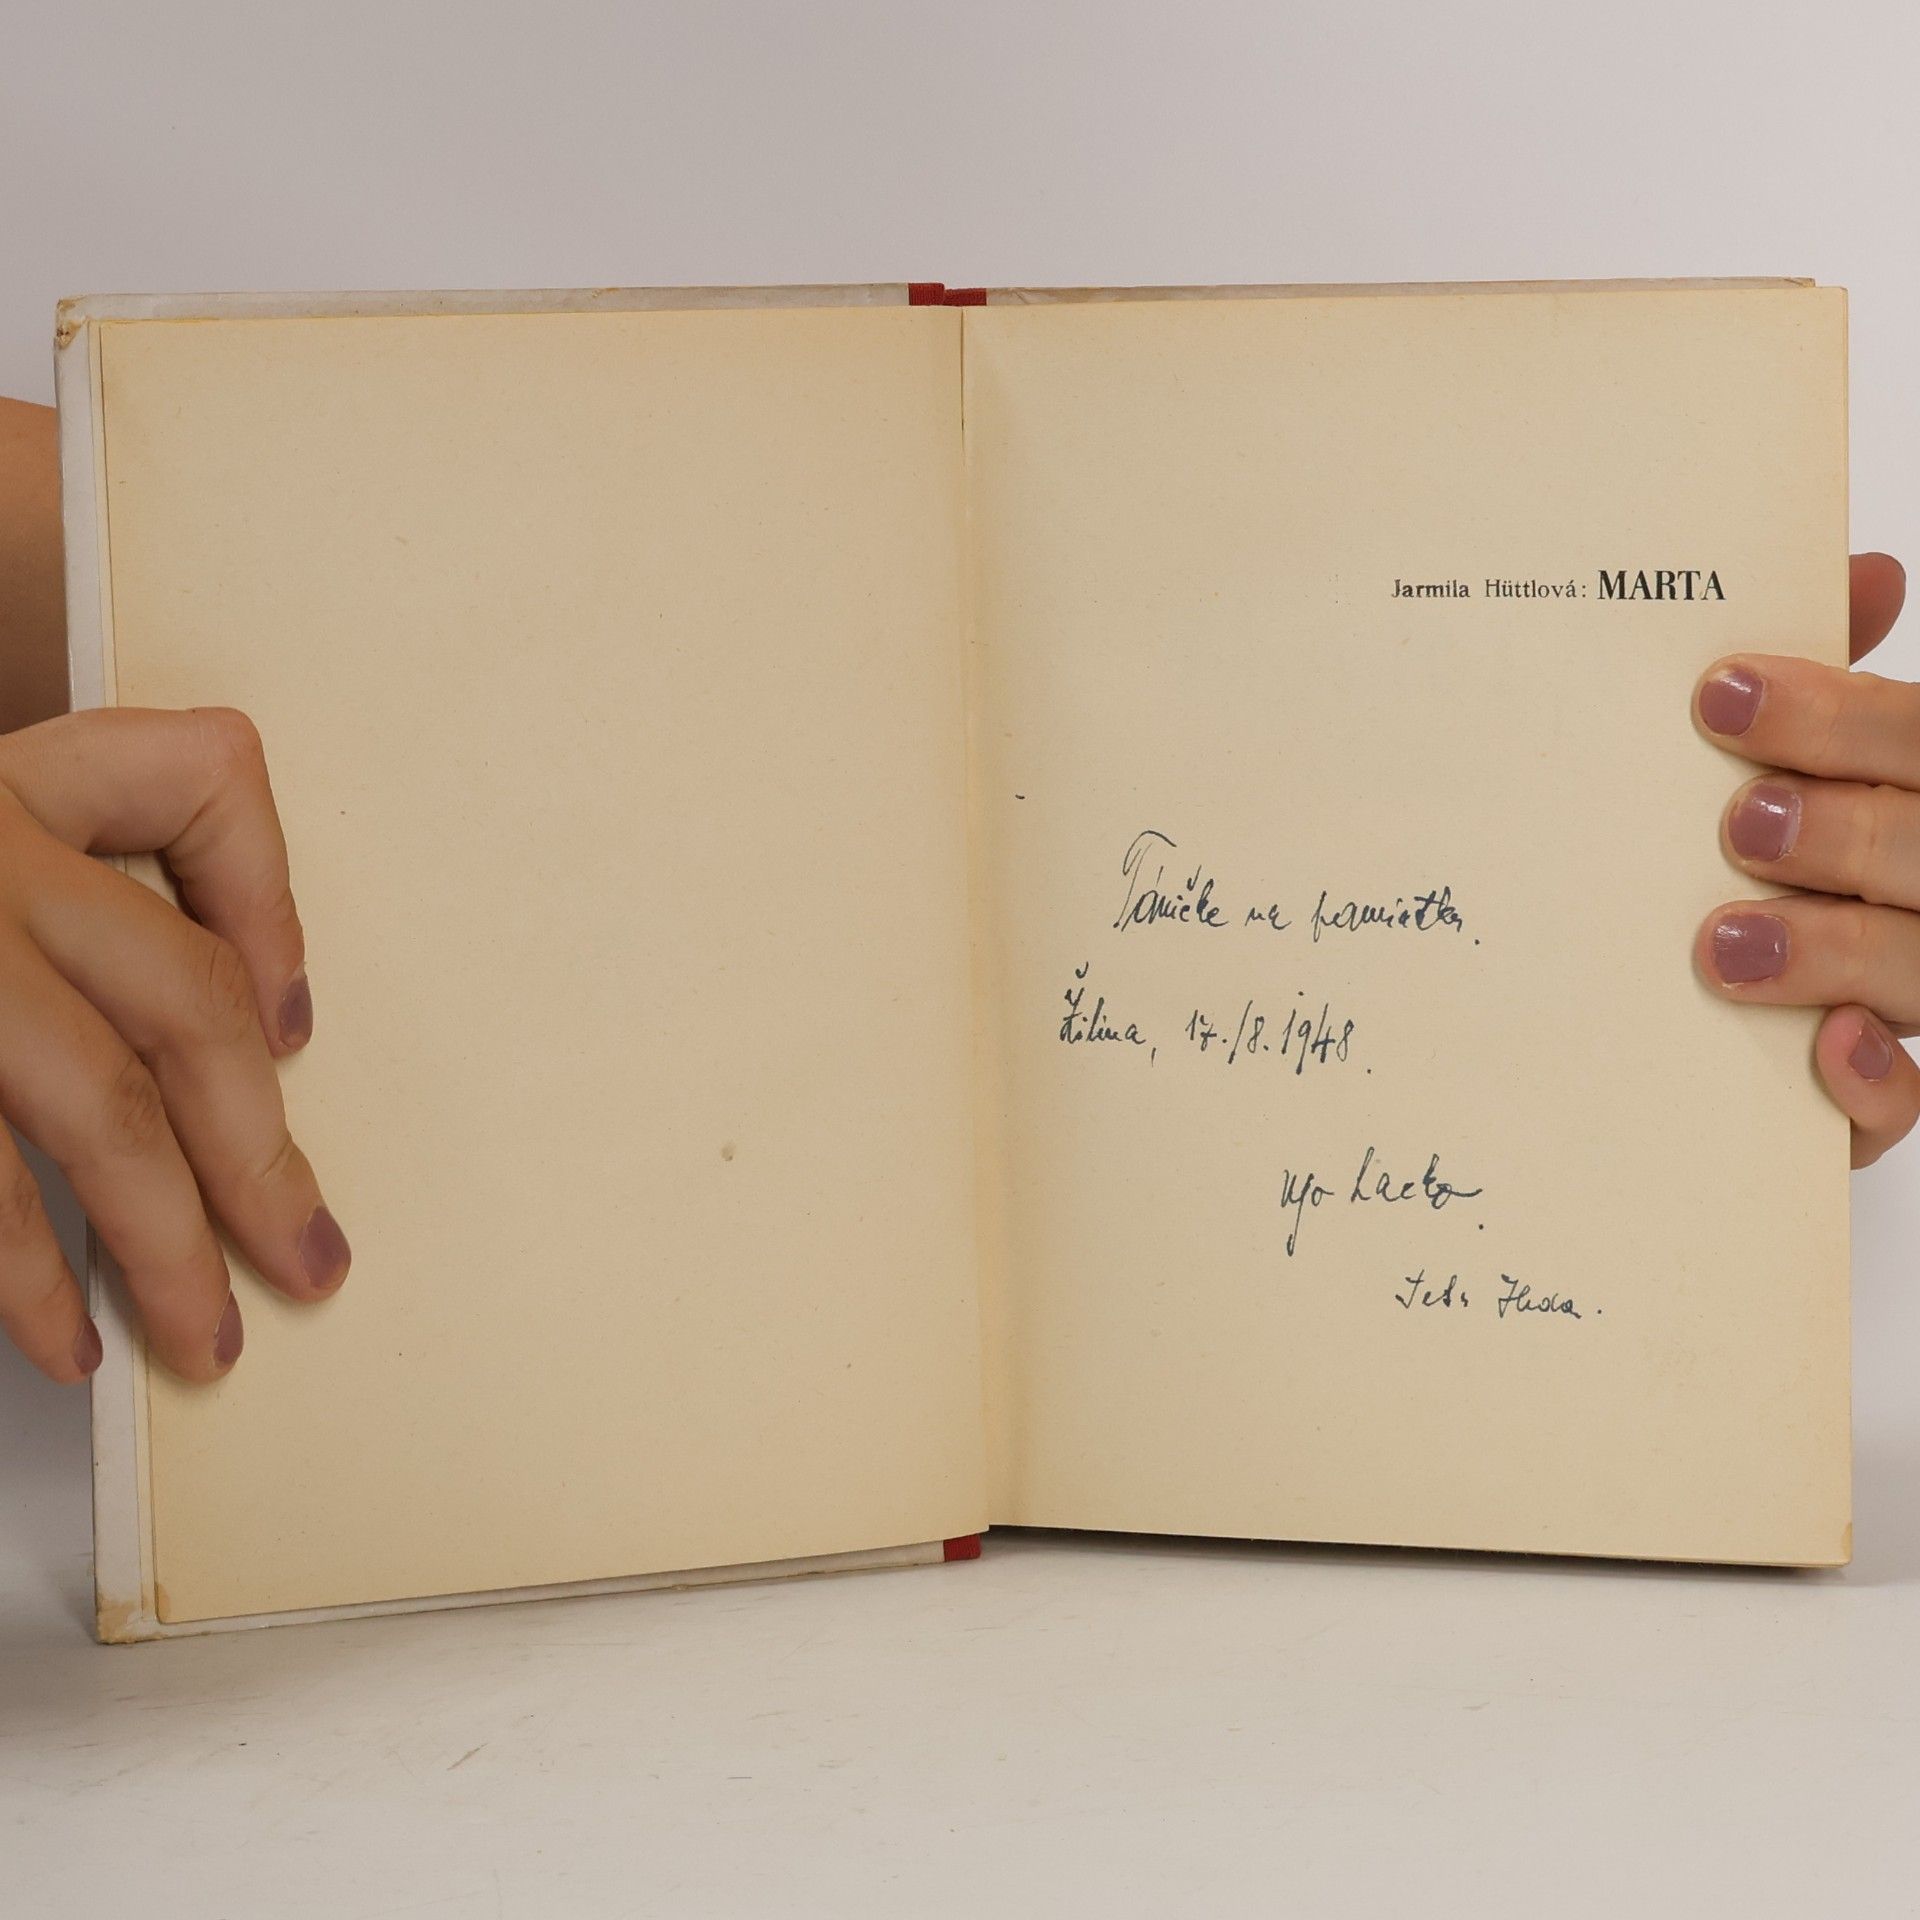 Jarmila Hüttlová: MARTA
Táničke na pamiatku.
Žilina, 17./8. 1948.
Lacko.